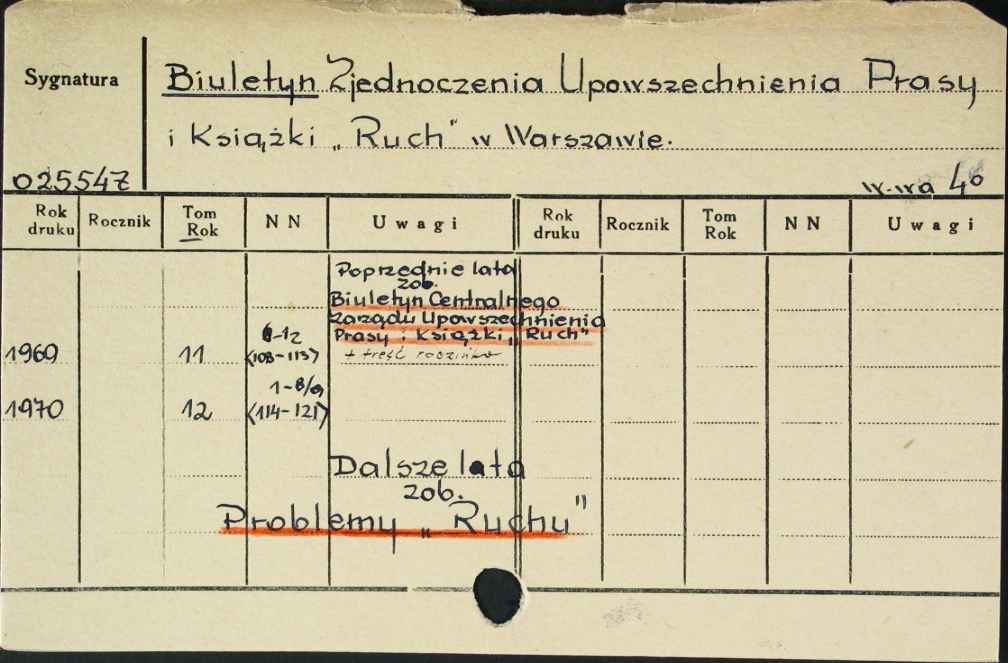 Sygnatura
Biuletyn Zjednoczenia Upowszechnienia Prasy
i Książki „Ruch" w Warszawie.
025547
W-wa 4°
Rok druku Rocznik Tom Rok NN Uwagi Rok druku Rocznik Tom Rok NN Uwagi
Poprzednie lata
zob.
Biuletyn Centralnego
Zarządu Upowszechnienia
Prasy i Książki „Ruch"
1969 11 6-12 <108-113> + treść rocznika
1970 12 1-8/9 <114-121>
Dalsze lata
zob.
Problemy „Ruchu"